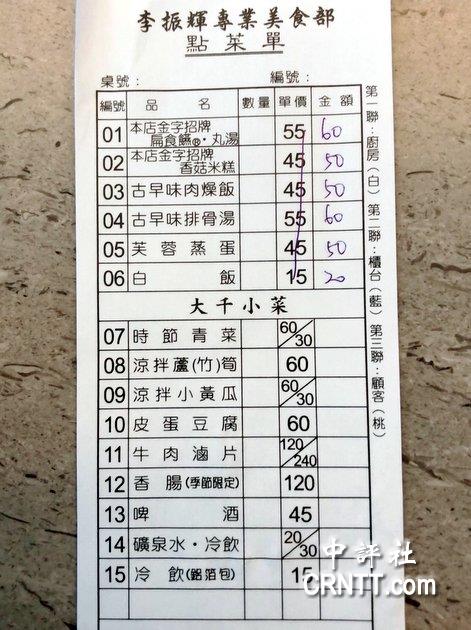 李振輝專業美食部
點菜單
桌號: 編號:
編號 品名 數量 單價 金額
01 本店金字招牌 扁食餚®‧丸湯 55 60
02 本店金字招牌 香菇米糕 45 50
03 古早味肉燥飯 45 50
04 古早味排骨湯 55 60
05 芙蓉蒸蛋 45 50
06 白飯 15 20
大千小菜
07 時節青菜 60/30
08 涼拌蘆(竹)筍 60
09 涼拌小黃瓜 60/30
10 皮蛋豆腐 60
11 牛肉滷片 120/240
12 香腸(季節限定) 120
13 啤酒 45
14 礦泉水‧冷飲 20/30
15 冷飲(鋁箔包) 15
第一聯:廚房(白) 第二聯:櫃台(藍) 第三聯:顧客(桃)
中評社
CRNTT.com